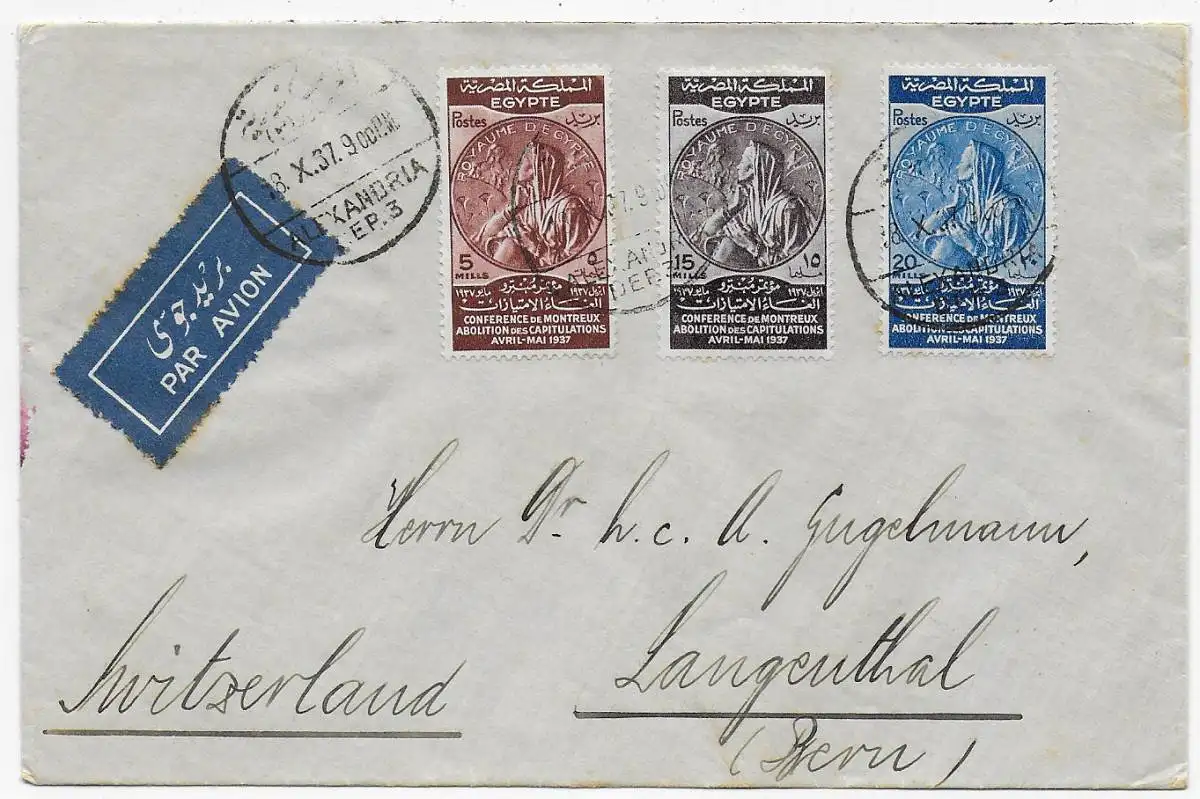 18.X.37.9 00PM
ALEXANDRIA
DEP.3
بريد جوى
PAR AVION
المملكة المصرية
EGYPTE
Postes بريد
ROYAUME D'EGYPTE
5 ٥
MILLS مليمات
مؤتمر منترو
ابريل ١٩٣٧ مايو ١٩٣٧
الغاء الامتيازات
CONFERENCE DE MONTREUX
ABOLITION DES CAPITULATIONS
AVRIL-MAI 1937
المملكة المصرية
EGYPTE
Postes بريد
ROYAUME D'EGYPTE
15 ١٥
MILLS مليما
مؤتمر منترو
ابريل ١٩٣٧ مايو ١٩٣٧
الغاء الامتيازات
CONFERENCE DE MONTREUX
ABOLITION DES CAPITULATIONS
AVRIL-MAI 1937
المملكة المصرية
EGYPTE
Postes بريد
ROYAUME D'EGYPTE
20 ٢٠
MILLS
الغاء الامتيازات
CONFERENCE DE MONTREUX
ABOLITION DES CAPITULATIONS
AVRIL-MAI 1937
Herrn Dr. h. c. A. Gugelmann,
Langenthal
(Bern)
Switzerland